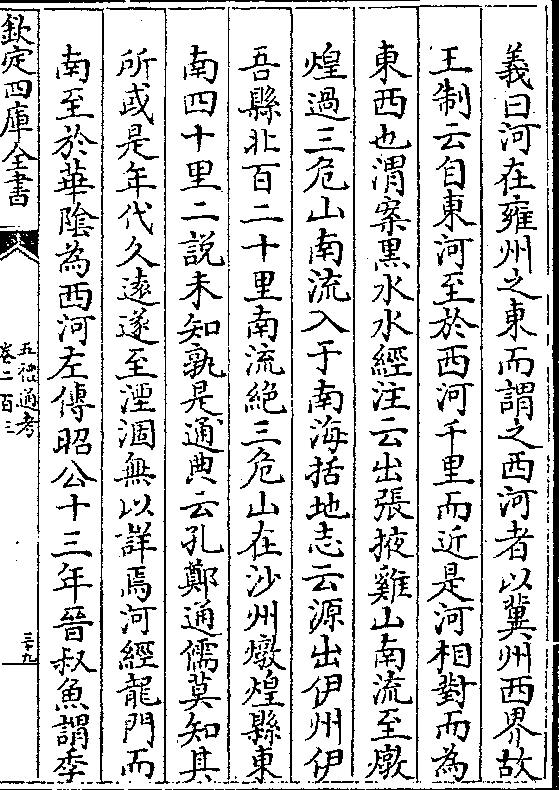 義曰河在雍州之東而謂之西河者以冀州西界故
王制云自東河至於西河千里而近是河相對而為
東西也渭案黑水水經注云出張掖雞山南流至燉
煌過三危山南流入于南海括地志云源出伊州伊
吾縣北百二十里南流絶三危山在沙州燉煌縣東
南四十里二説未知孰是通典云孔鄭通儒莫知其
所或是年代久遠遂至湮涸無以詳焉河經龍門而
南至於華隂為西河左傳昭公十三年晉叔魚謂季
欽定四庫全書
五禮通考
卷二百三
三十九